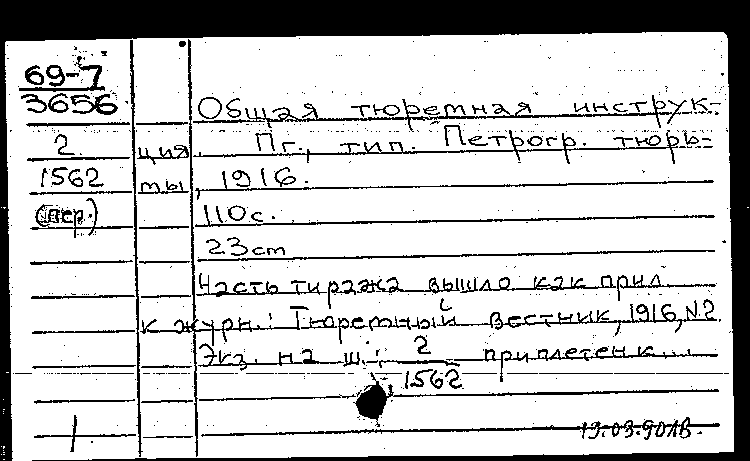 69-7
3656
Общая тюремная инструк-
2
ция. Пг., тип. Петрогр. тюрь-
1562
мы, 1916.
(пер.)
110с.
23cm
Часть тиража вышло как прил.
к журн.: Тюремный вестник, 1916, N2
Экз. на ш.: 2/1562 приплетен к...
1
19.03.90